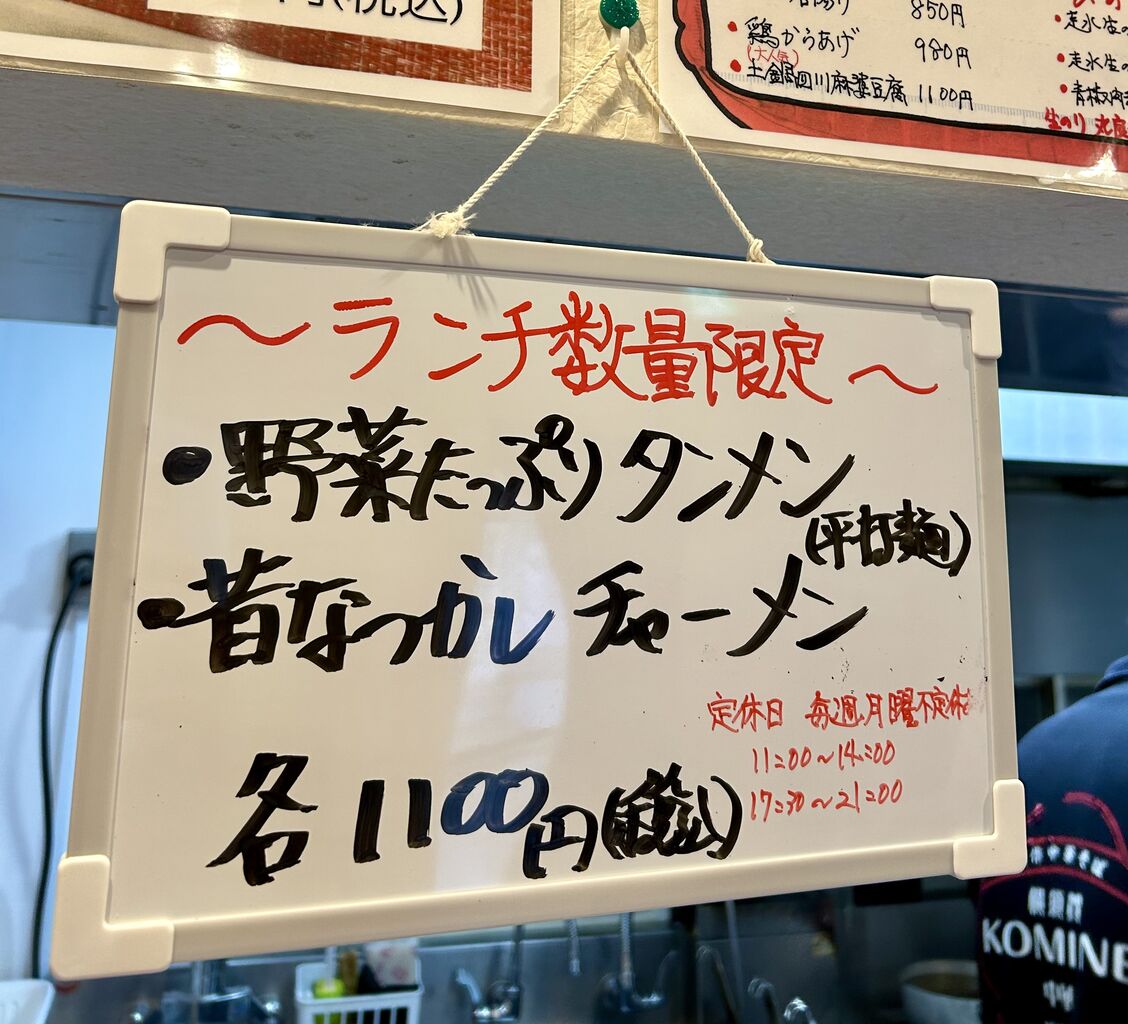 (税込)
850円
・鶏からあげ 980円
(大人気)
・土鍋四川麻婆豆腐 1100円
〜ランチ数量限定〜
・野菜たっぷりタンメン
(平打麺)
・昔なつかしチャーメン
定休日 毎週月曜不定休
11:00〜14:00
17:30〜21:00
各1100円(税込)
横須賀
KOMINE